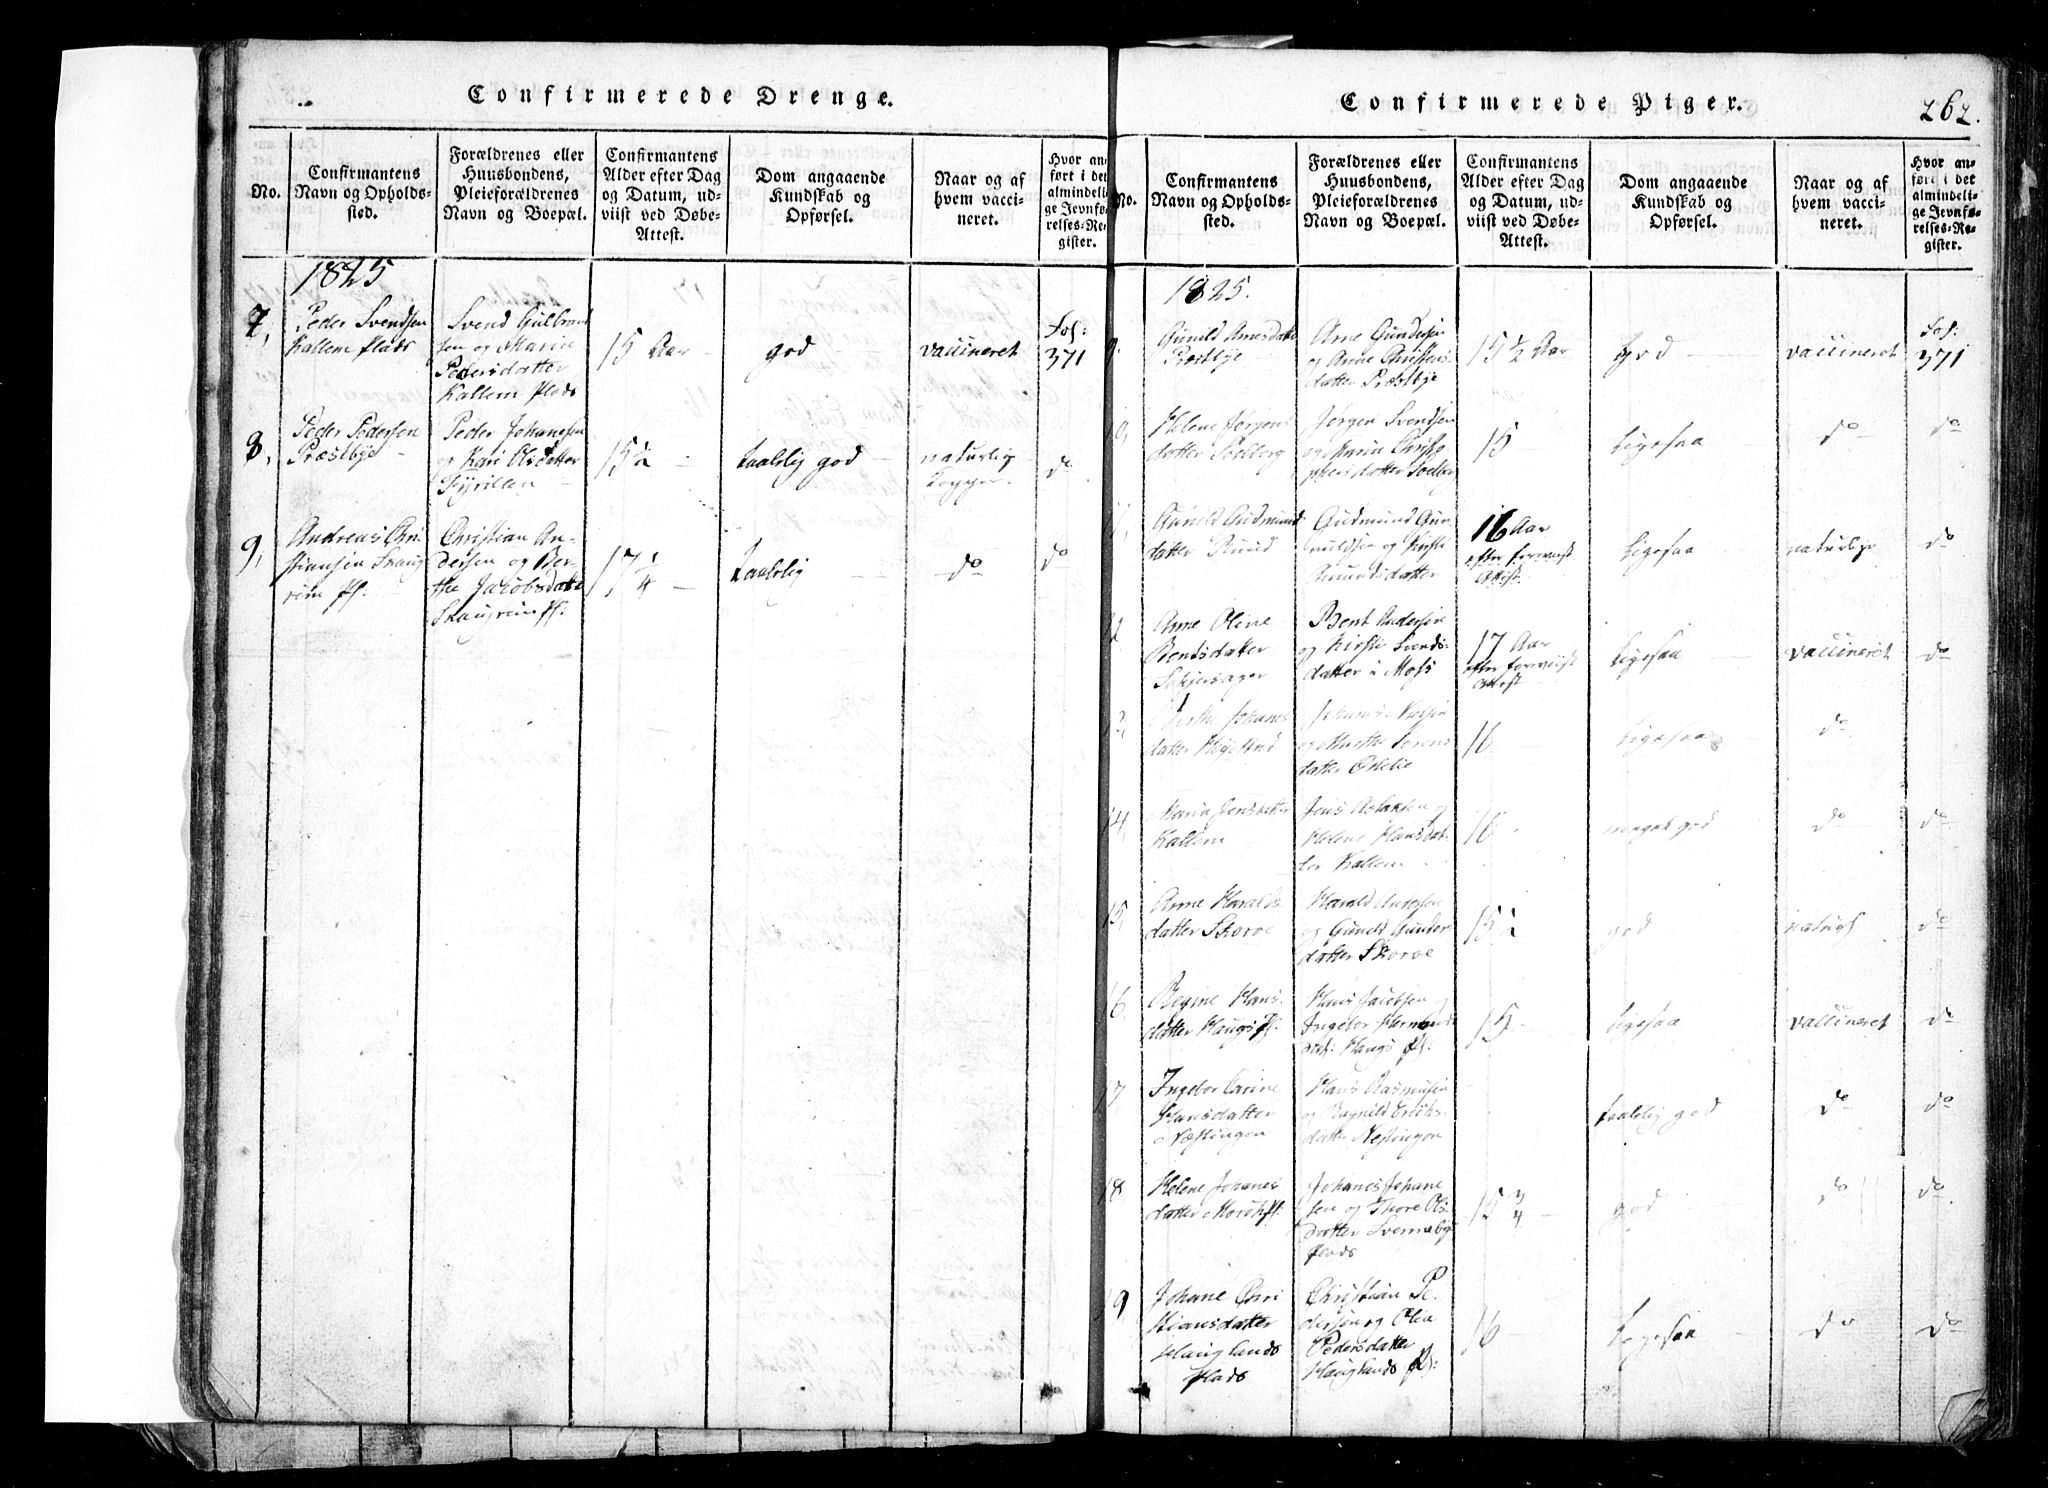 Confirmerede Drenge.
No.
Confirmantens
Navn og Opholds-
sted.
Forældrenes eller
Huusbondens,
Pleieforældrenes
Navn og Boepæl.
Confirmantens
Alder efter Dag
og Datum, ud-
viist ved Døbe-
Attest.
Dom angaaende
Kundskab og
Opførsel.
Naar og af
hvem vacci-
neret.
Hvor an-
ført i det
almindeli-
ge Jevnfø-
relses-Re-
gister.
1825
7,
Peder Svendsen
Kallem plads
Svend Gulbrand
sen og Marie
Pedersdatter
Kallem Plads
15 Aar
god
vaccineret
Fol:
371
8,
Peder Pedersen
Præstbye
Peder Johanesen
og Kari Olsdatter
15½
taalelig god
naturlig
Kopper
do
9,
Andreas Chri
stiansen Skaug
rim pl.
Christian An-
dersen og Ber-
the Jacobsdatter
Skaugrim pl.
17 1/4
taalelig
do
do
Confirmerede Piger.
262.
No.
Confirmantens
Navn og Opholds-
sted.
Forældrenes eller
Huusbondens,
Pleieforældrenes
Navn og Boepæl.
Confirmantens
Alder efter Dag
og Datum, ud-
viist ved Døbe-
Attest.
Dom angaaende
Kundskab og
Opførsel.
Naar og af
hvem vacci-
neret.
Hvor an-
ført i det
almindeli-
ge Jevnfø-
relses-Re-
gister.
1825.
9.
Gunild Arnesdatter
Præstbye
Arne Gundersen
og Anne Christens
datter Præstbye
15 ½ Aar
god
vaccineret
Fol:
371
10,
Helene Jørgens
datter Solberg
Jørgen Svendsen
og Maria Christo
phersdatter Solberg
15
ligesaa
do
do
11,
Gunild Gudmunds
datter Ruud
Gudmund Gun
nuldsen og Kirsti
Amundsdatter
16 Aar
efter foreviist
Attest
ligesaa
naturlige
do
12
Anne Oline
Bentsdatter
Bent Andersen
og Kirsti Svends
datter i Moss
17 Aar
efter foreviist
Attest
ligesaa
vaccineret
do
13,
Johanes
datter
Johanes
og Marthe Sørens
datter
16
ligesaa
do
14,
Maria Jensdatter
Kallem
Jens Aslaksen og
Helene Hansdat
ter Kallem
16
meget god
do
do
15,
Anne Haralds
datter Skoroe
Harald Andersen
og Gunild Gunder
datter Skoroe
15½
god
naturl
do
16.
Regine Hans
datter Haugs Pl.
Hans Jacobsen og
Ingebor
dat: Haugs Pl:
15
ligesaa
vaccineret
do
17
Ingebor Carine
Hansdatter
Næstingen
Hans Rasmusen
og Ragnild Eriks
datter Nestingen
taalelig god
do
do
18
Helene Johanes
datter Moreh pl.
Johanes Johane
sen og Thore Ols
datter Svennebye
plads
15 3/4
god
do
do
19
Johane Chri
stiansdatter
Hauglands
plads
Christian Pe
dersen og Olea
Pedersdatter
Hauglands Pl:
16
ligesaa
do
do